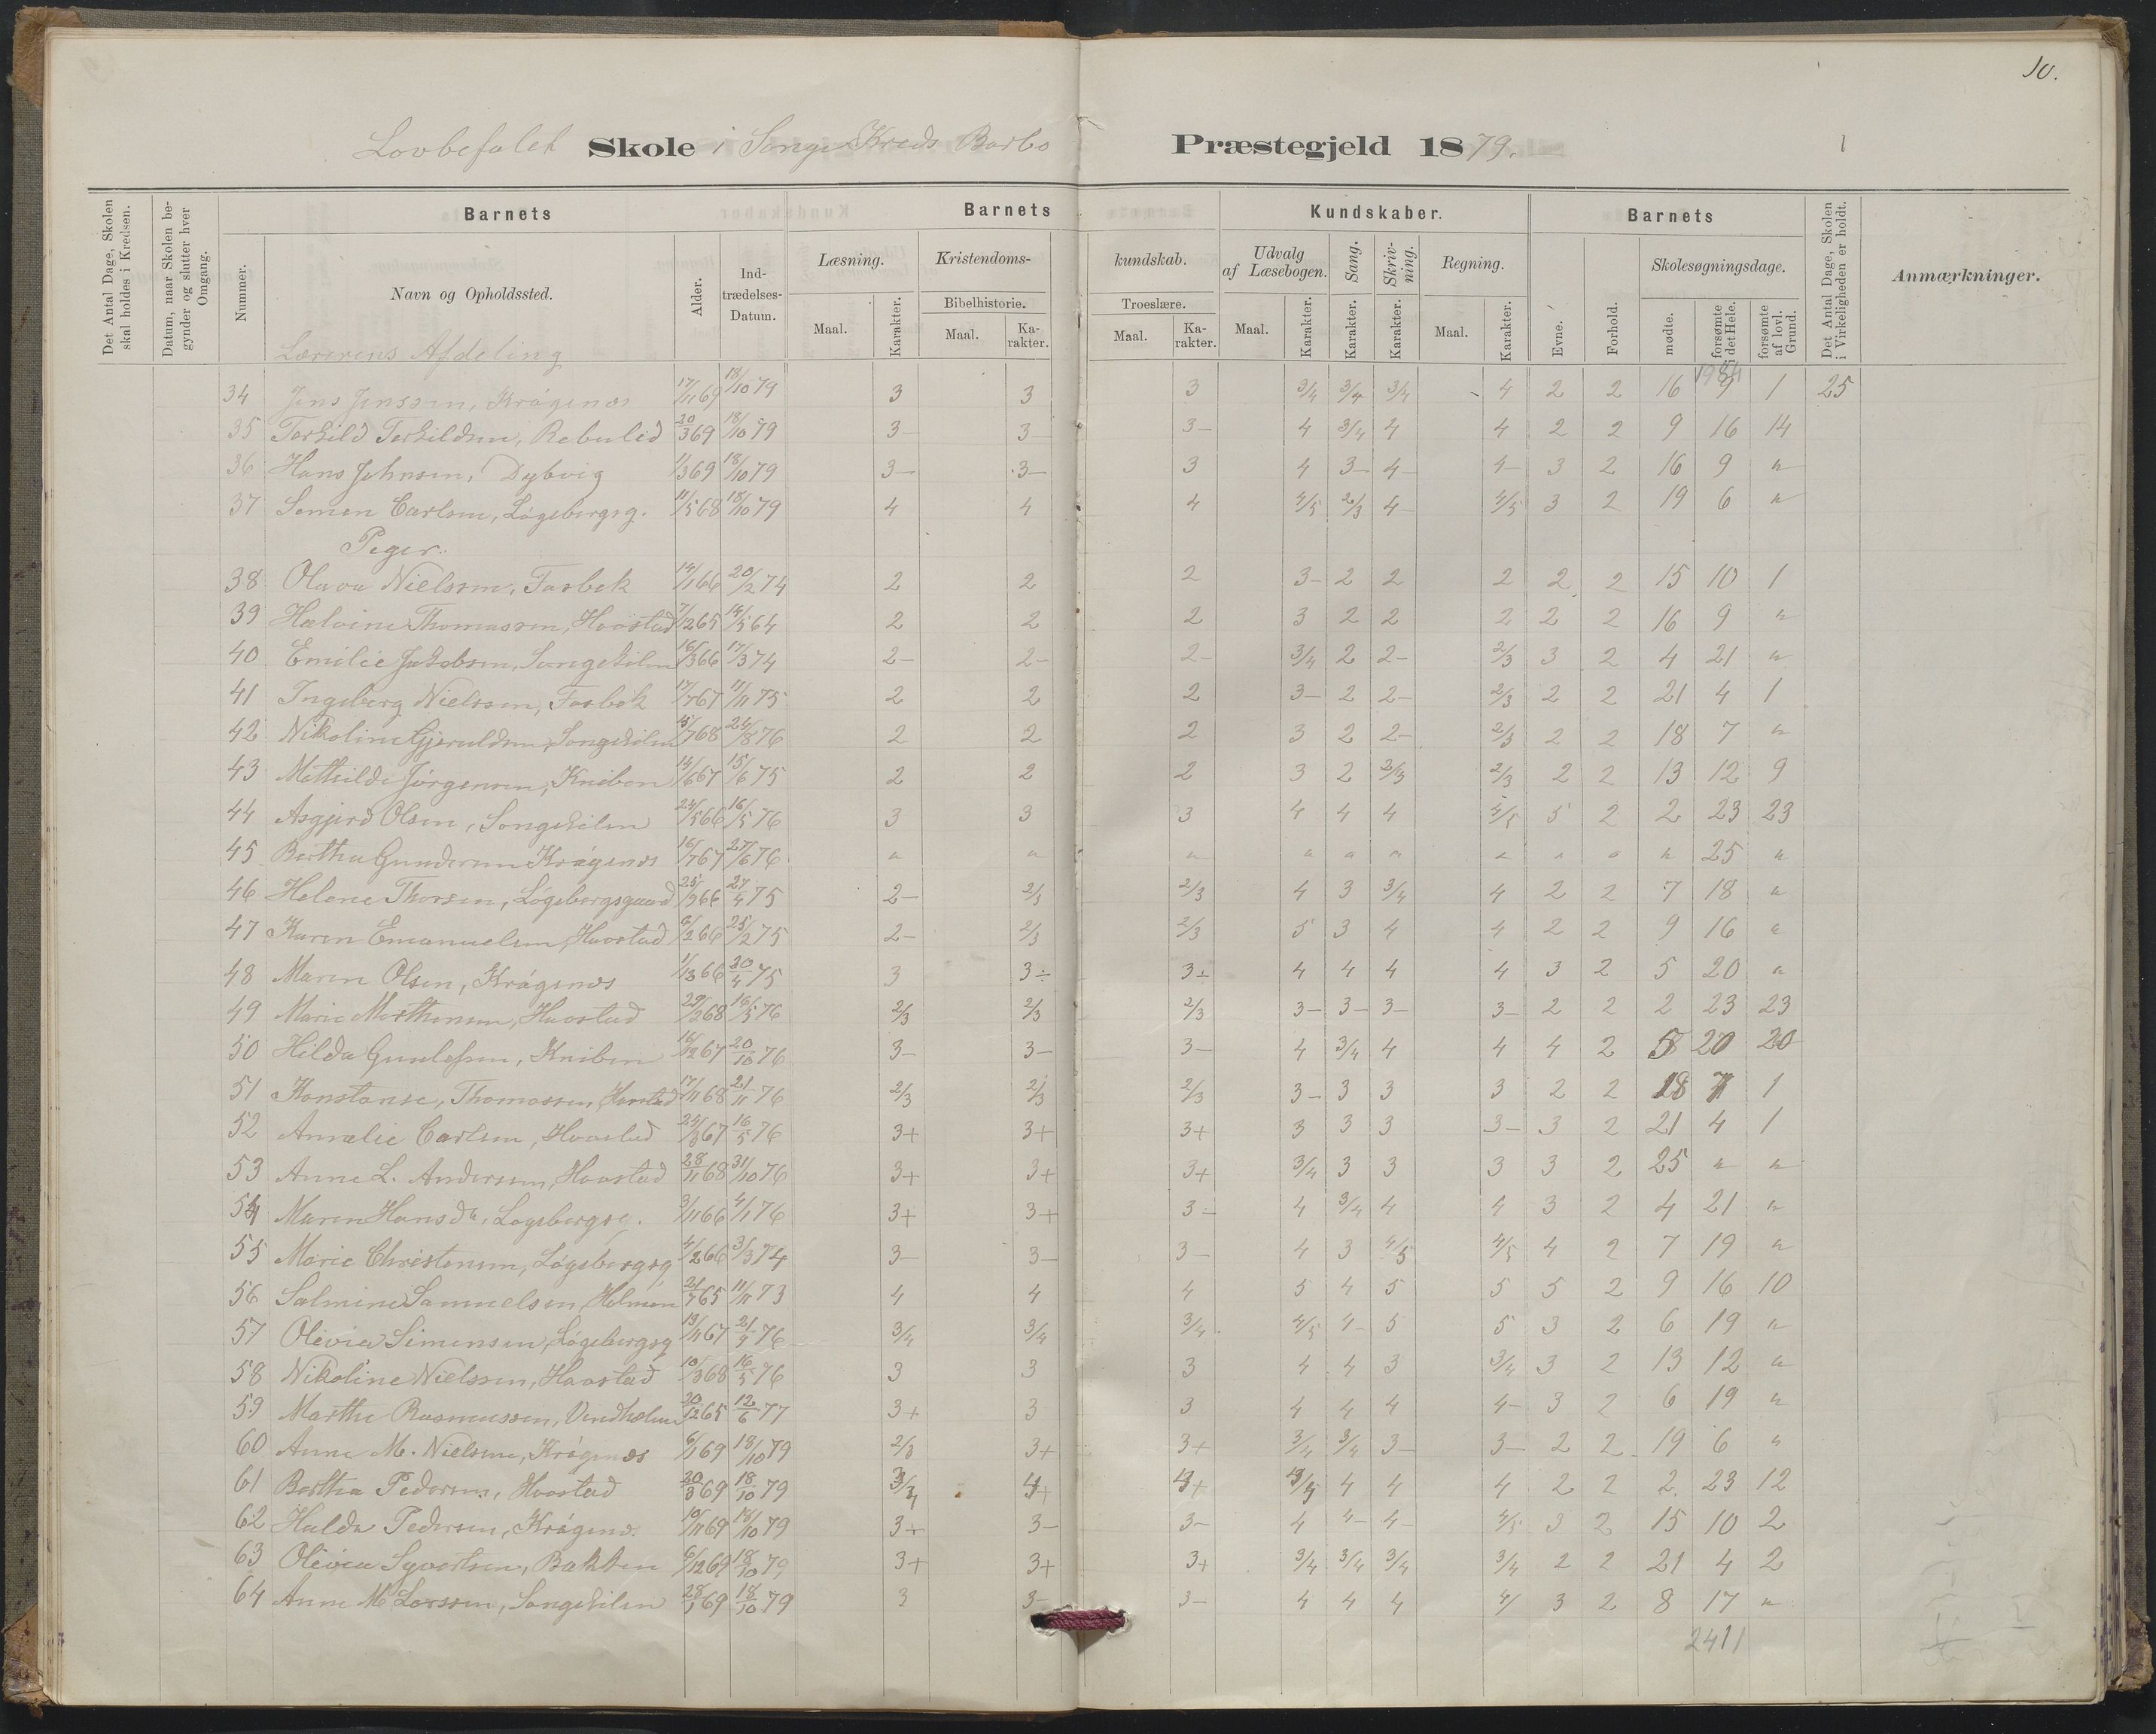 10.
Lovbefalet Skole i Songe Kreds Barbo Præstegjeld 1879.
Det Antal Dage, Skolen skal holdes i Kredsen.
Datum, naar Skolen begynder og slutter hver Omgang.
Barnets
Nummer.
Navn og Opholdssted.
Alder.
Indtrædelses-Datum.
Barnets
Læsning.
Maal.
Karakter.
Kristendoms-
Bibelhistorie.
Maal.
Karakter.
kundskab.
Troeslære.
Maal.
Karakter.
Kundskaber.
Udvalg af Læsebogen.
Maal.
Karakter.
Sang.
Karakter.
Skrivning.
Karakter.
Regning.
Maal.
Karakter.
Barnets
Evne.
Forhold.
Skolesøgningsdage.
mødte.
forsømte i det Hele.
forsømte af lovl. Grund.
Det Antal Dage, Skolen i Virkeligheden er holdt.
Anmærkninger.
Lærerens Afdeling
34 Jens Jenssen, Krøgenæs 17/11 69 18/10 79 3 3 3 3/4 3/4 3/4 4 2 2 16 9 1 25
35 Terkild Terkildsen, Rebulid 20/3 69 18/10 79 3- 3- 3- 4 3/4 4 4 2 2 9 16 14
36 Hans Johnsen, Dybvig 1/3 69 18/10 79 3- 3- 3 4 3- 4- 4- 3 2 16 9 "
37 Semen Carlsen, Løgebergsg. 11/5 68 18/10 79 4 4 4 4/5 2/3 4- 4/5 3 2 19 6 "
Piger.
38 Olava Nielssen, Fasbek 14/1 66 20/2 74 2 2 2 3- 2 2 2 2 2 15 10 1
39 Halvine Thomassen, Haastad 7/2 65 14/5 64 2 2 2 3 2 2 2 2 2 16 9 "
40 Emilie Jakobsen, Songekilen 16/3 66 17/3 74 2- 2- 2- 3/4 2 2- 2/3 3 2 4 21 "
41 Ingeberg Nielssen, Fasbek 17/7 67 11/11 75 2 2 2 3- 2 2- 2/3 2 2 21 4 1
42 Nikoline Gjeruldsen, Songekilen 5/7 68 24/8 76 2 2 2 3 2 2- 2/3 2 2 18 7 "
43 Mathilde Jørgensen, Kniben 14/6 67 15/6 75 2 2 2 3 2 2/3 2/3 2 2 13 12 9
44 Asgjerd Olsen, Songekilen 24/5 66 16/5 76 3 3 3 4 4 4 4/5 5 2 2 23 23
45 Bertha Gundersen Krøgenæs 16/7 67 27/6 76 " " " " " " " " " " 25 "
46 Helene Thorsen, Løgebergsgaard 25/9 66 27/4 75 2- 2/3 2/3 4 3 3/4 4 2 2 7 18 "
47 Karen Emanuelsen, Haastad 8/2 66 25/2 75 2- 2/3 2/3 5 3 4 4 2 2 9 16 "
48 Maren Olsen, Krøgenæs 1/13 66 30/4 75 3 3÷ 3÷ 4 4 4 4 3 2 5 20 "
49 Marie Morthensen, Haastad 29/2 68 16/5 76 2/3 2/3 2/3 3- 3- 3- 3- 2 2 2 23 23
50 Hilda Gunlefsen, Kniben 16/12 67 20/10 76 3- 3- 3- 4 3/4 4 4 4 2 5 20 20
51 Konstanse, Thomassen, Haastad 17/11 68 21/11 76 2/3 2/3 2/3 3- 3 3 3 2 2 18 7 1
52 Amalie Carlsen, Haastad 24/3 67 16/5 76 3+ 3+ 3+ 3 3 3 3- 3 2 21 4 1
53 Anne L. Andersen, Haastad 28/11 68 31/10 76 3+ 3+ 3+ 3/4 3 3 3 3 2 25 " "
54 Maren Hansdtr, Løgebergsg. 3/11 66 4/1 76 3+ 3+ 3- 4 3/4 4 4 3 2 4 21 "
55 Marie Christensen, Løgebergsg 4/2 66 3/3 74 3- 3- 3- 4 3 4/5 4/5 4 2 7 19 "
56 Salmine Samuelsen, Holmen 21/7 65 11/11 73 4 4 4 5 4 5 5 5 2 9 16 10
57 Olivia Simensen, Løgebergsg 13/11 67 21/9 76 3/4 3/4 3/4 4/5 4- 5 5 3 2 6 19 "
58 Nikoline Nielssen, Haastad 10/3 68 16/5 76 3 3 3 4 4 3 3/4 3 2 13 12 "
59 Marthe Rasmussen, Vindholmen 20/12 65 12/6 77 3+ 3 3 4 4 4 4- 3 2 6 19 "
60 Anne M. Nielsen, Krøgenæs 6/1 69 18/10 79 2/3 3+ 3+ 3/4 3/4 3- 3- 2 2 19 6 "
61 Bertha Pedersen, Haastad 20/3 69 18/10 79 3/4 4+ 4+ 3/4 4 4 4 2 2 2 23 12
62 Hulda Pedersen, Krøgenæs 10/11 69 18/10 79 3+ 3- 3- 4 4- 4- 4/5 3 2 15 10 2
63 Olivia Syvertsen, Bakken 6/12 69 18/10 79 3+ 3+ 3+ 3/4 3/4 3/4 3/4 2 2 21 4 2
64 Anne M Larssen, Songekilen 28/1 69 18/10 79 3 3- 3- 4 4 4 4/ 3 2 8 17 "
2411